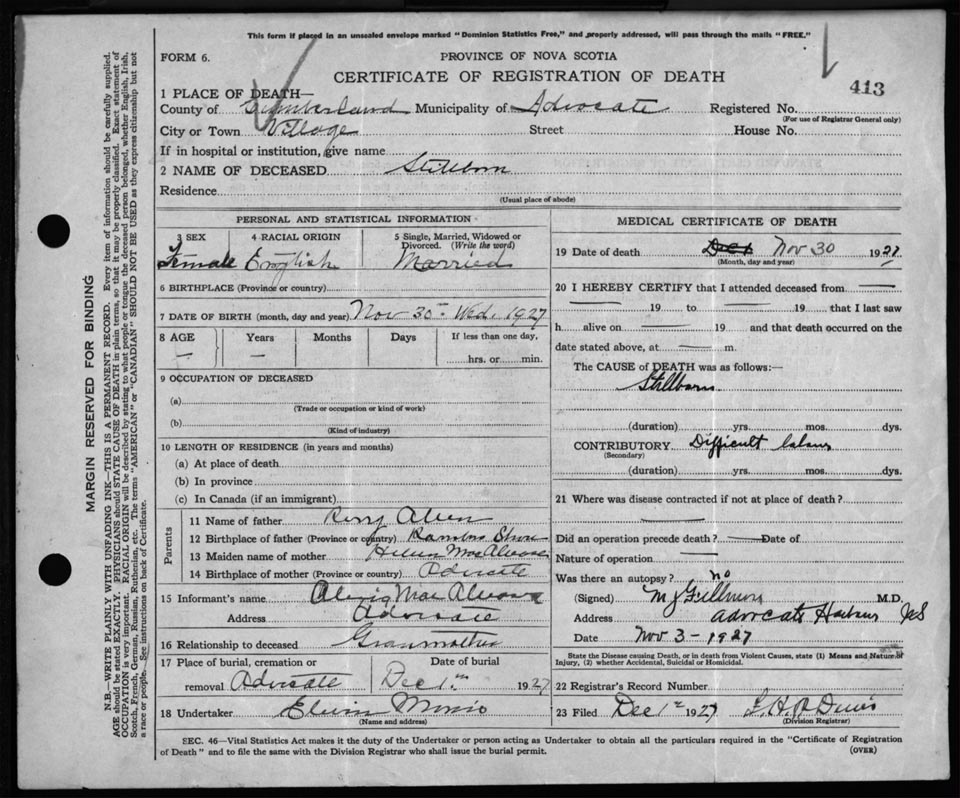 This form if placed in an unsealed envelope marked "Dominion Statistics Free," and properly addressed, will pass through the mails "FREE."
FORM 6.
PROVINCE OF NOVA SCOTIA
CERTIFICATE OF REGISTRATION OF DEATH
413
1 PLACE OF DEATH—
County of Cumberland Municipality of Advocate Registered No.
(For use of Registrar General only)
City or Town Village Street House No.
If in hospital or institution, give name
2 NAME OF DECEASED Stillborn
Residence
(Usual place of abode)
PERSONAL AND STATISTICAL INFORMATION
3 SEX 4 RACIAL ORIGIN 5 Single, Married, Widowed or Divorced. (Write the word)
Female English Married
6 BIRTHPLACE (Province or country)
7 DATE OF BIRTH (month, day and year) Nov 30 - Wed. 1927
8 AGE Years Months Days If less than one day,
— — hrs. or min.
9 OCCUPATION OF DECEASED
(a)
(Trade or occupation or kind of work)
(b)
(Kind of industry)
10 LENGTH OF RESIDENCE (in years and months)
(a) At place of death
(b) In province
(c) In Canada (if an immigrant)
Parents
11 Name of father Allen
12 Birthplace of father (Province or country) Shore
13 Maiden name of mother
14 Birthplace of mother (Province or country) Advocate
15 Informant's name
Address Advocate
16 Relationship to deceased Granmother
17 Place of burial, cremation or removal Advocate
Date of burial
Dec 1st 1927
18 Undertaker Elwin Morris
(Name and address)
MEDICAL CERTIFICATE OF DEATH
19 Date of death Dec Nov 30 1927
(Month, day and year)
20 I HEREBY CERTIFY that I attended deceased from —
— 19 to — 19 that I last saw
h alive on — 19 and that death occurred on the
date stated above, at — m.
The CAUSE of DEATH was as follows:—
Stillborn
(duration) yrs. mos. dys.
CONTRIBUTORY Difficult labour
(Secondary)
(duration) yrs. mos. dys.
21 Where was disease contracted if not at place of death?
—
Did an operation precede death? — Date of
Nature of operation —
Was there an autopsy? no
(Signed) M.D.
Address Advocate Harbour NS
Date Nov 3 - 1927
State the Disease causing Death, or in death from Violent Causes, state (1) Means and Nature of Injury, (2) whether Accidental, Suicidal or Homicidal.
22 Registrar's Record Number
23 Filed Dec 1st 1927
(Division Registrar)
SEC. 46—Vital Statistics Act makes it the duty of the Undertaker or person acting as Undertaker to obtain all the particulars required in the "Certificate of Registration
of Death" and to file the same with the Division Registrar who shall issue the burial permit.
(OVER)
MARGIN RESERVED FOR BINDING
N.B.—WRITE PLAINLY WITH UNFADING INK—THIS IS A PERMANENT RECORD. Every item of information should be carefully supplied.
AGE should be stated EXACTLY. PHYSICIANS should STATE CAUSE OF DEATH in plain terms, so that it may be properly classified. Exact statement of
OCCUPATION is very important. RACIAL ORIGIN will be described by stating to what people or tongue the deceased person belonged, whether English, Irish,
Scotch, French, German, Russian, Ruthenian, etc. The terms "AMERICAN" or "CANADIAN" SHOULD NOT BE USED as they express citizenship but not
a race or people. See instructions on back of Certificate.